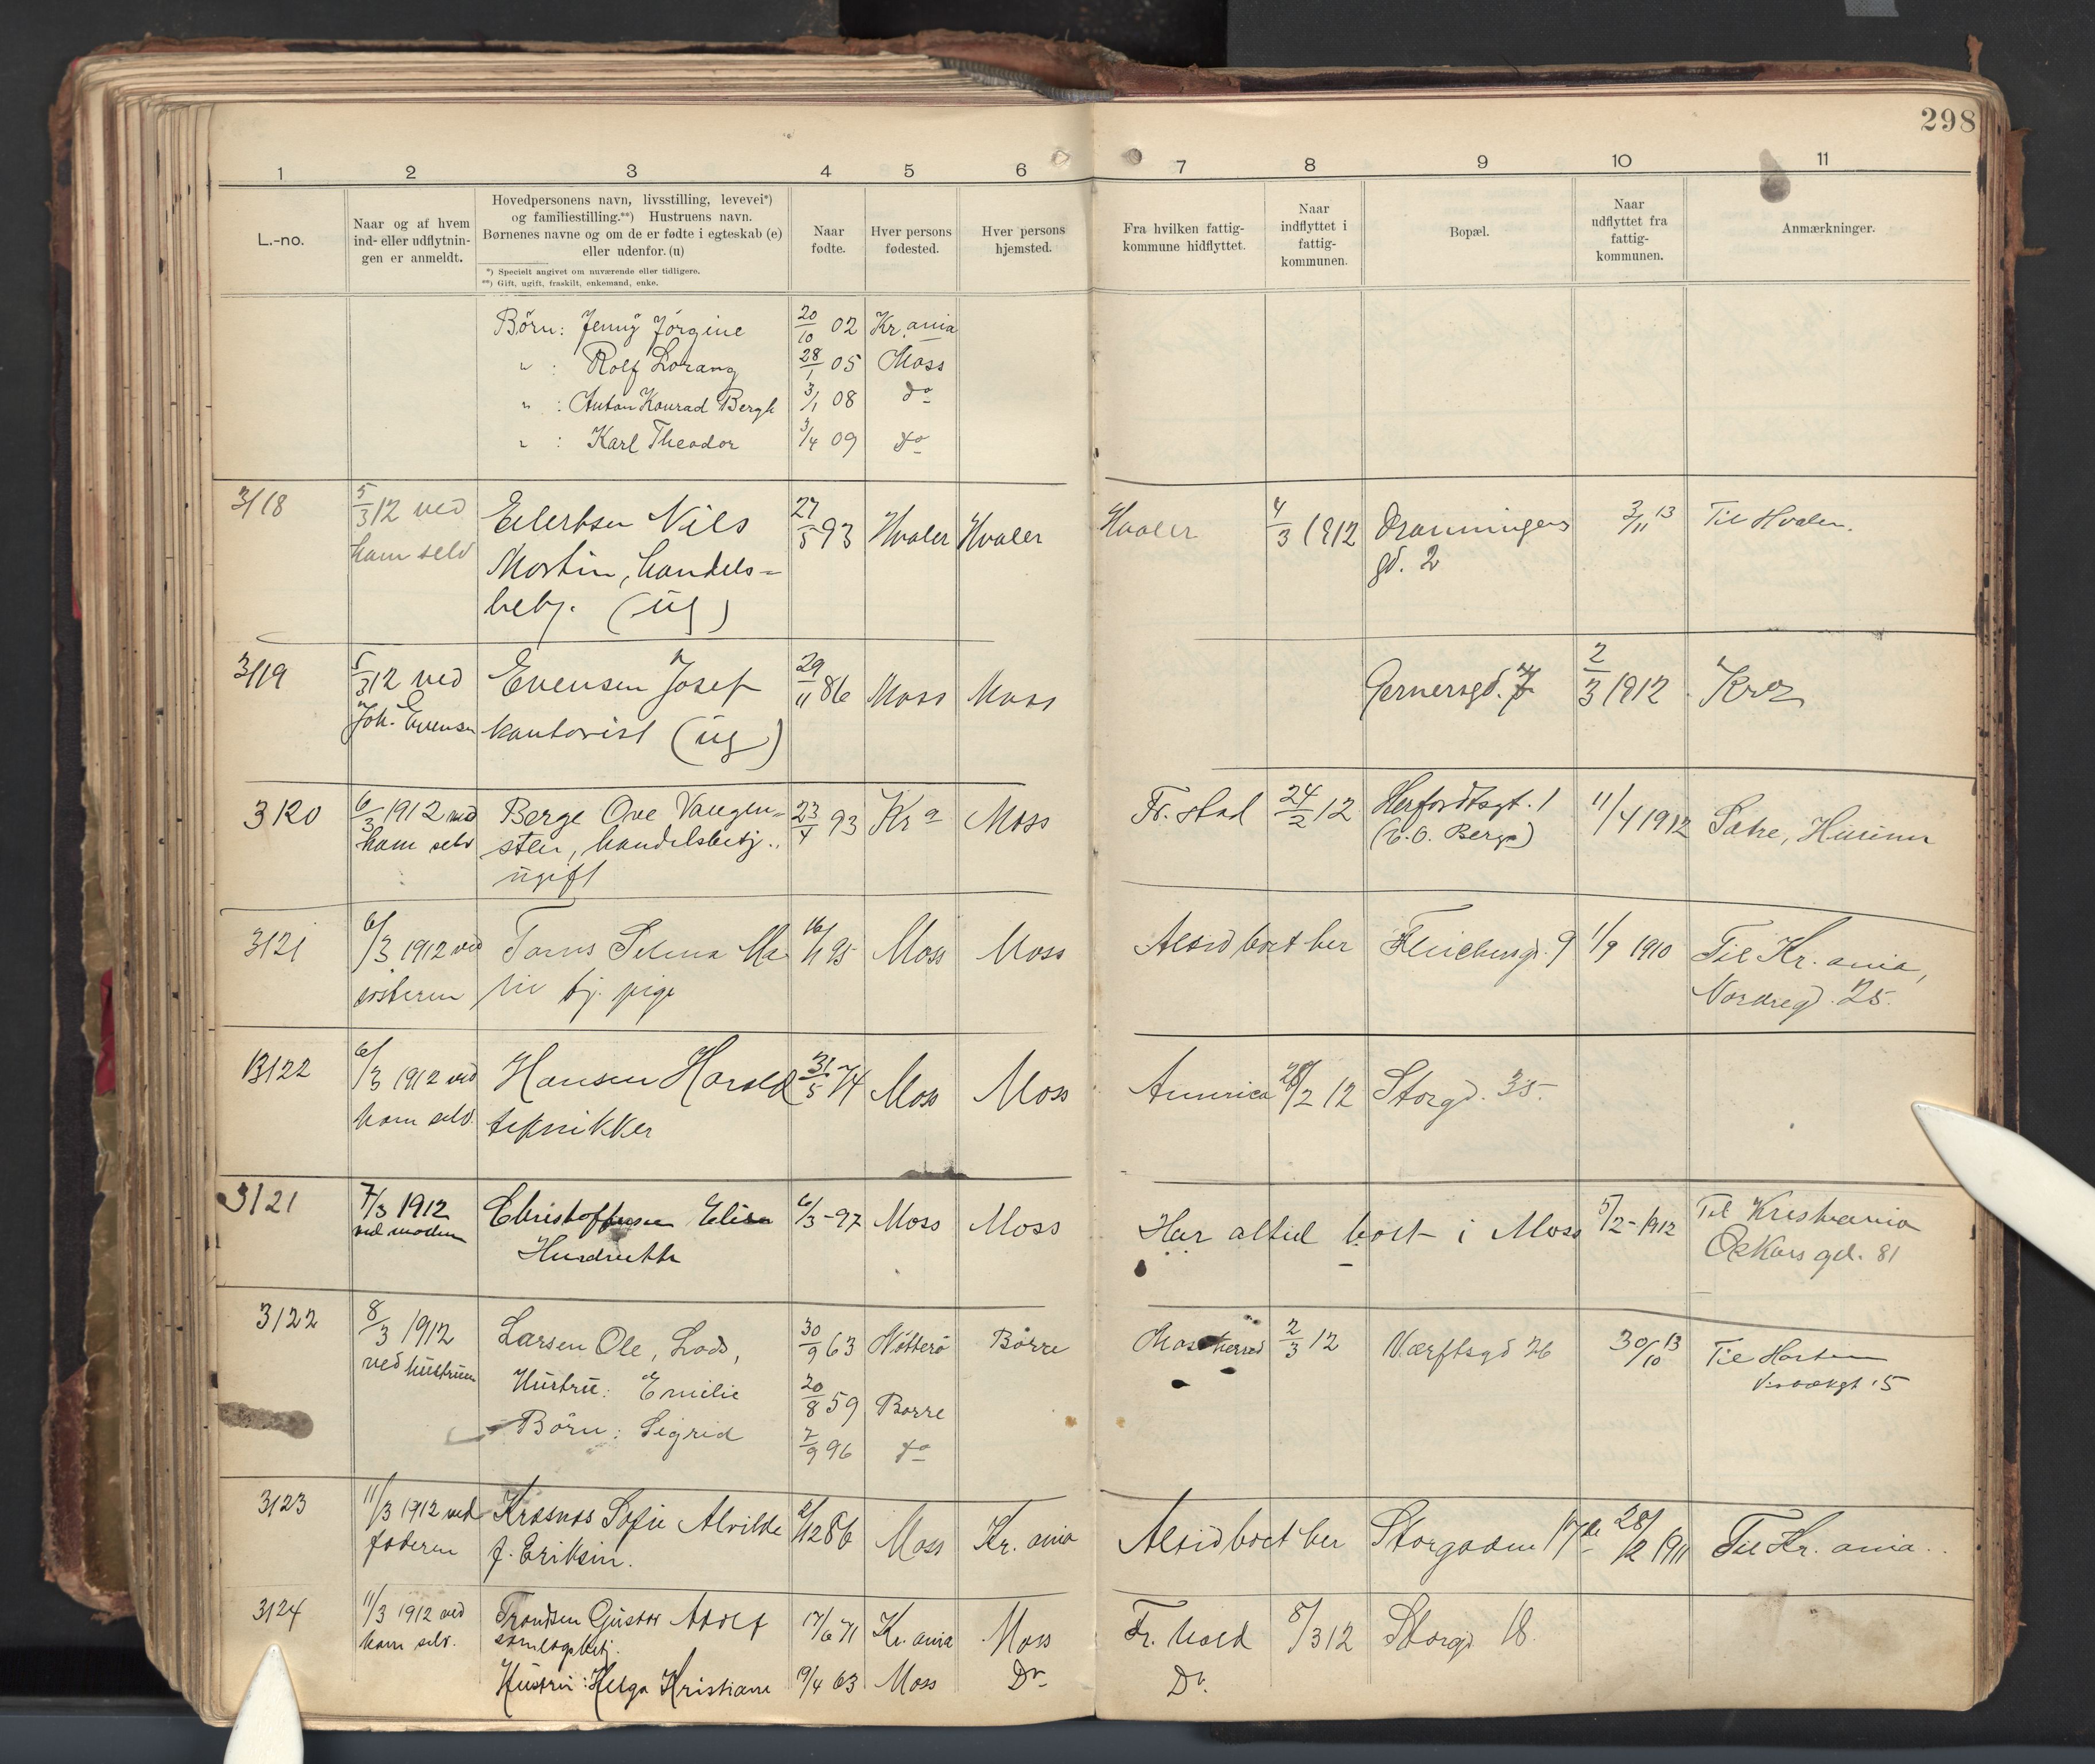 298
1 2 3 4 5 6 7 8 9 10 11
L.-no.
Naar og af hvem
ind- eller udflytnin-
gen er anmeldt.
Hovedpersonens navn, livsstilling, levevei*)
og familiestilling.**) Hustruens navn.
Børnenes navne og om de er fødte i egteskab (e)
eller udenfor. (u)
*) Specielt angivet om nuværende eller tidligere.
**) Gift, ugift, fraskilt, enkemand, enke.
Naar
fødte.
Hver persons
fødested.
Hver persons
hjemsted.
Fra hvilken fattig-
kommune hidflyttet.
Naar
indflyttet i
fattig-
kommunen.
Bopæl.
Naar
udflyttet fra
fattig-
kommunen.
Anmærkninger.
Børn: Jenny Jörgine 20/10 02 Kr.ania
" : Rolf Lorang 28/1 05 Moss
" : Anton Konrad Bergh 3/1 08 do
" : Karl Theodor 3/4 09 do
3118 5/3 12 ved Eilertsen Nils 27/5 93 Hvaler Hvaler Hvaler 4/3 1912 Dronningens 3/11 13 Til Hvaler.
ham selv Martin, handels-
gd. 2
betj. (ug)
3119 5/3 12 ved Evensen Josef 29/11 86 Moss Moss Gernersgd. 7 2/3 1912 Kra
Joh. Evensen kontorist (ug)
3120 6/3 1912 ved Berge Ove Vangen- 23/4 93 Kra Moss Fr. stad 24/2 12 Herfordtsgt. 1 11/4 1912 Sætre, Hurum
ham selv sten, handelsbetj., (O. Berge)
ugift
3121 6/3 1912 ved Selma Ma 16/11 95 Moss Moss Altid boet her 9 1/9 1910 Til Kr. ania,
søsteren rie tj. pige Nordregd. 25.
13122 6/3 1912 ved Hansen Harald 31/5 74 Moss Moss America 28/2 12 Storgd. 35.
ham selv. teknikker
3121 7/3 1912 Christoffersen Elise 6/3-97 Moss Moss Har altid boet i Moss 5/2-1912 Til Kristiania
ved moderen Oskars gd. 81
3122 8/3 1912 Larsen Ole, Lods, 30/9 63 Nötterö Borre Moss herred 2/3 12 Værftsgd 26 30/10 13 Til Horten
ved hustruen Hustru: Emilie 20/8 59 Borre
Börn: Sigrid 7/9 96 do
3123 11/3 1912 ved Sofie Alvilde 2/12 86 Moss Kr. ania Altid boet her Storgaden 17 28/2 1911 Til Kr. ania.
faderen f. Eriksen.
3124 11/3 1912 ved Trondsen Gustav Adolf 17/6 71 Kr. ania Moss Fr. hald 8/3 12 Storgd 18.
ham selv. samlagsbetj.
Hustru: Helga Kristiane 19/4 63 Moss Do Do.